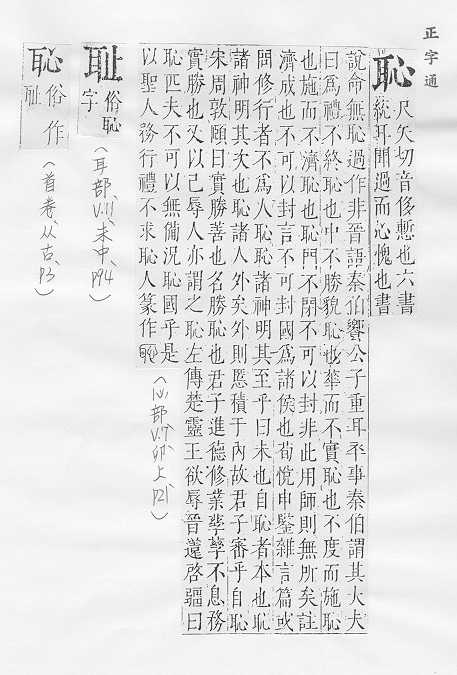 正字通
恥
尺矢切音侈慙也六書
統耳聞過而心愧也書
說命無恥過作非晉語秦伯饗公子重耳卒事秦伯謂其大夫
曰爲禮不終恥也中不勝貌恥也華而不實恥也不度而施恥
也施而不濟恥也恥門不閉不可以封非此用師則無所矣註
濟成也不可以封言不可封國爲諸侯也荀悅申鑒雜言篇或
問修行者不爲人恥恥諸神明其至乎曰未也自恥者本也恥
諸神明其次也恥諸人外矣外則慝積于內故君子審乎自恥
宋周敦頤曰實勝善也名勝恥也君子進德修業孳孳不息務
實勝也又以己辱人亦謂之恥左傳楚靈王欲辱晉薳啓疆曰
恥匹夫不可以無備況恥國乎是
以聖人務行禮不求恥人篆作
(心部、V.17、卯上、P21)
耻
俗恥
字
(耳部、V.11、未中、P94)
恥
俗作
耻
(首卷、从古、P3)